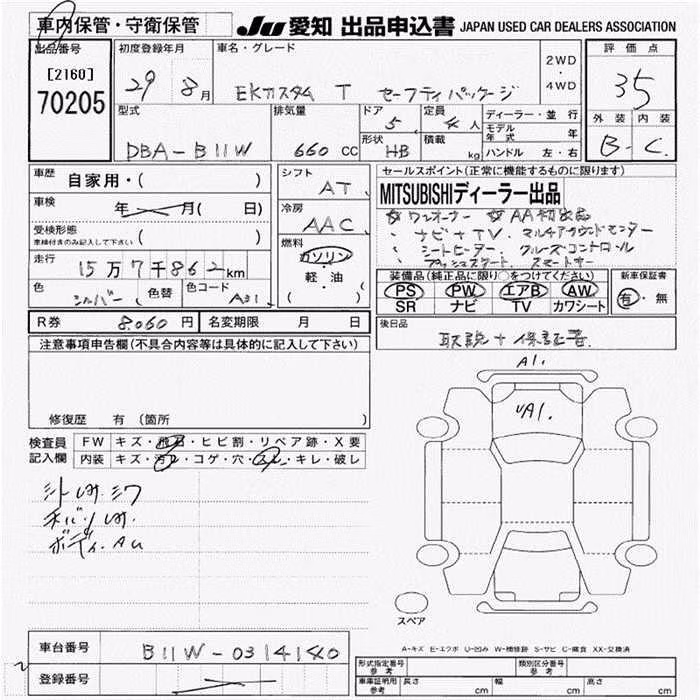 車内保管・守衛保管 JU 愛知 出品申込書 JAPAN USED CAR DEALERS ASSOCIATION
出品番号 初度登録年月 車名・グレード 2WD・4WD 評価点
[2160]
70205
29年 8月 EKカスタム T セーフティパッケージ 35
型式 排気量 ドア 定員 ディーラー・並行 外装 内装
DBA-B11W 660 cc 5 4人 モデル年式 年
形状 HB 積載 kg ハンドル 左・右 B- C.
車歴 自家用・( )
車検 年 月( 日)
受検形態
車検付きのみ記入して下さい ( )
走行 15万7千862km
色 シルバー ( ) 色替 色コード A31
シフト AT
冷房 AAC
燃料 ガソリン・軽・油 ( )
セールスポイント(正常に機能するものに限ります)
MITSUBISHIディーラー出品
☆ワンオーナー ☆AA初出品
・ナビ+TV. マルチアラウンドモニター
・シートヒーター. クルーズコントロール
・プッシュスタート. スマートキー
装備品(純正品に限り○をつけてください) 新車保証書
PS PW エアB AW 有・無
SR ナビ TV カワシート
R券 8.060円 名変期限 月 日
後日品 取説+保証書.
注意事項申告欄(不具合内容等は具体的に記入して下さい)
修復歴 有 (箇所 )
検査員記入欄 FW キズ・飛石・ヒビ割・リペア跡・X要
内装 キズ・汚レ・コゲ・穴・スレ・キレ・破レ
シート しみ.シワ
チバリ しみ.
ボディ.AU
A1.
UA1.
スペア
A-キズ E-エクボ U-凹み W-補修跡 S-サビ C-腐食 XX-交換済
車台番号 B11W-0314140
登録番号
形式指定番号 参考 類別区分番号 参考
車庫証明用 参考 長さ cm 幅 cm 高さ cm